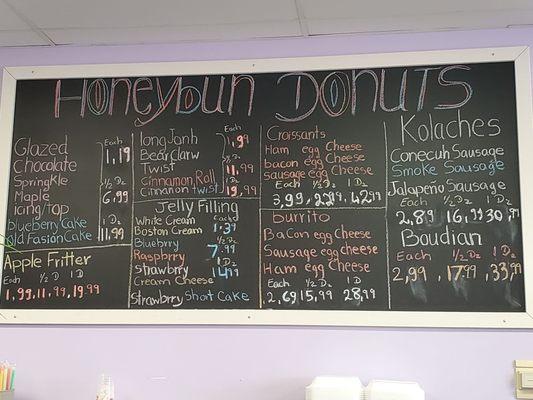 Honeybun Donuts
Glazed
Chocolate
Sprinkle
Maple
icing/top
blueberry Cake
old Fasion Cake
Each
1,19
½ Dz
6,99
1 Dz
11,99
Apple Fritter
Each ½ D 1 D
1,99, 11,99, 19,99
long Jonh
Bear Claw
Twist
Cinnamon Roll
Cinnamon twist
Each
1,99
½ Dz
11,99
1 Dz
19,99
Jelly Filling
White Cream
Boston Cream
Bluebrry
Raspberry
strawberry
Cream Cheese
Strawberry Short Cake
Each
1,39
½ Dz
7,99
1 Dz
14,99
Croissants
Ham egg Cheese
bacon egg Cheese
sausage egg Cheese
Each ½ Dz 1 Dz
3,99, 42,99
burrito
BaCon egg Cheese
Sausage egg Cheese
Ham egg Cheese
Each ½ Dz 1 D
2,69 15,99 28,99
Kolaches
Conecuh Sausage
Smoke Sausage
Jalapeño Sausage
Each ½ Dz 1 Dz
2,89 16,99 30,99
Boudian
Each ½ Dz 1 D
2,99, 17,99 33,99